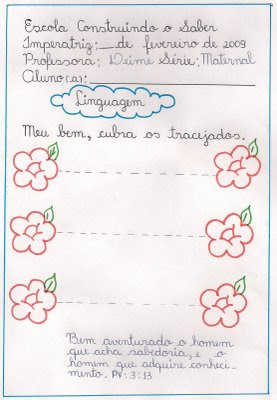 Escola Construindo o Saber
Imperatriz: __ de fevereiro de 2009
Professora: Deime Série: Maternal
Aluno(a): ____________________
Linguagem
Meu bem, cubra os tracejados.
Bem aventurado o homem
que acha sabedoria, e o
homem que adquire conheci-
mento. Pv: 3:13